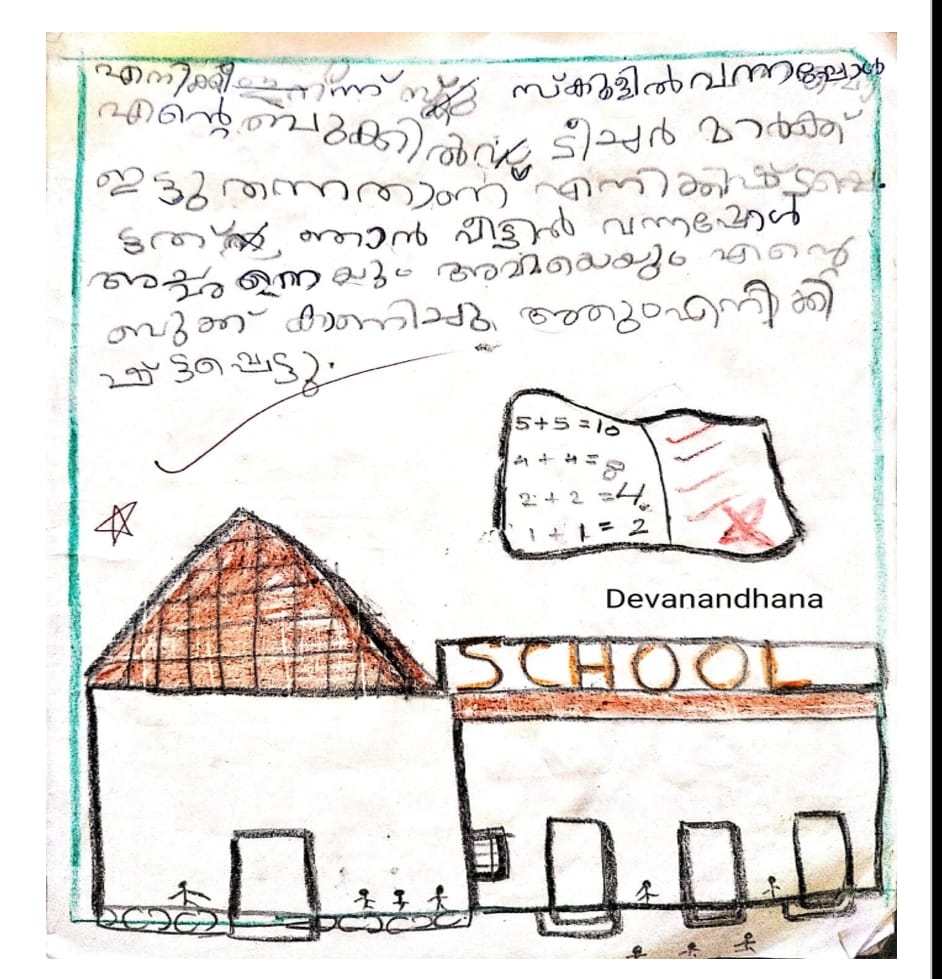 എനിക്ക് ഇന്ന് സ്കൂളിൽ വന്നപ്പോൾ
എന്റെ ബുക്കിൽ ടീച്ചർ മാർക്ക്
ഇട്ടു തന്നതാണ് എനിക്കിഷ്ടപ്പെ
ട്ടത് ഞാൻ വീട്ടിൽ വന്നപ്പോൾ
യും അമ്മയെയും എന്റെ
ബുക്ക് കാണിച്ചു അതും എനിക്കി
ഷ്ടപ്പെട്ടു.
5+5=10
4+4=8
2+2=4
1+1=2
Devanandhana
SCHOOL